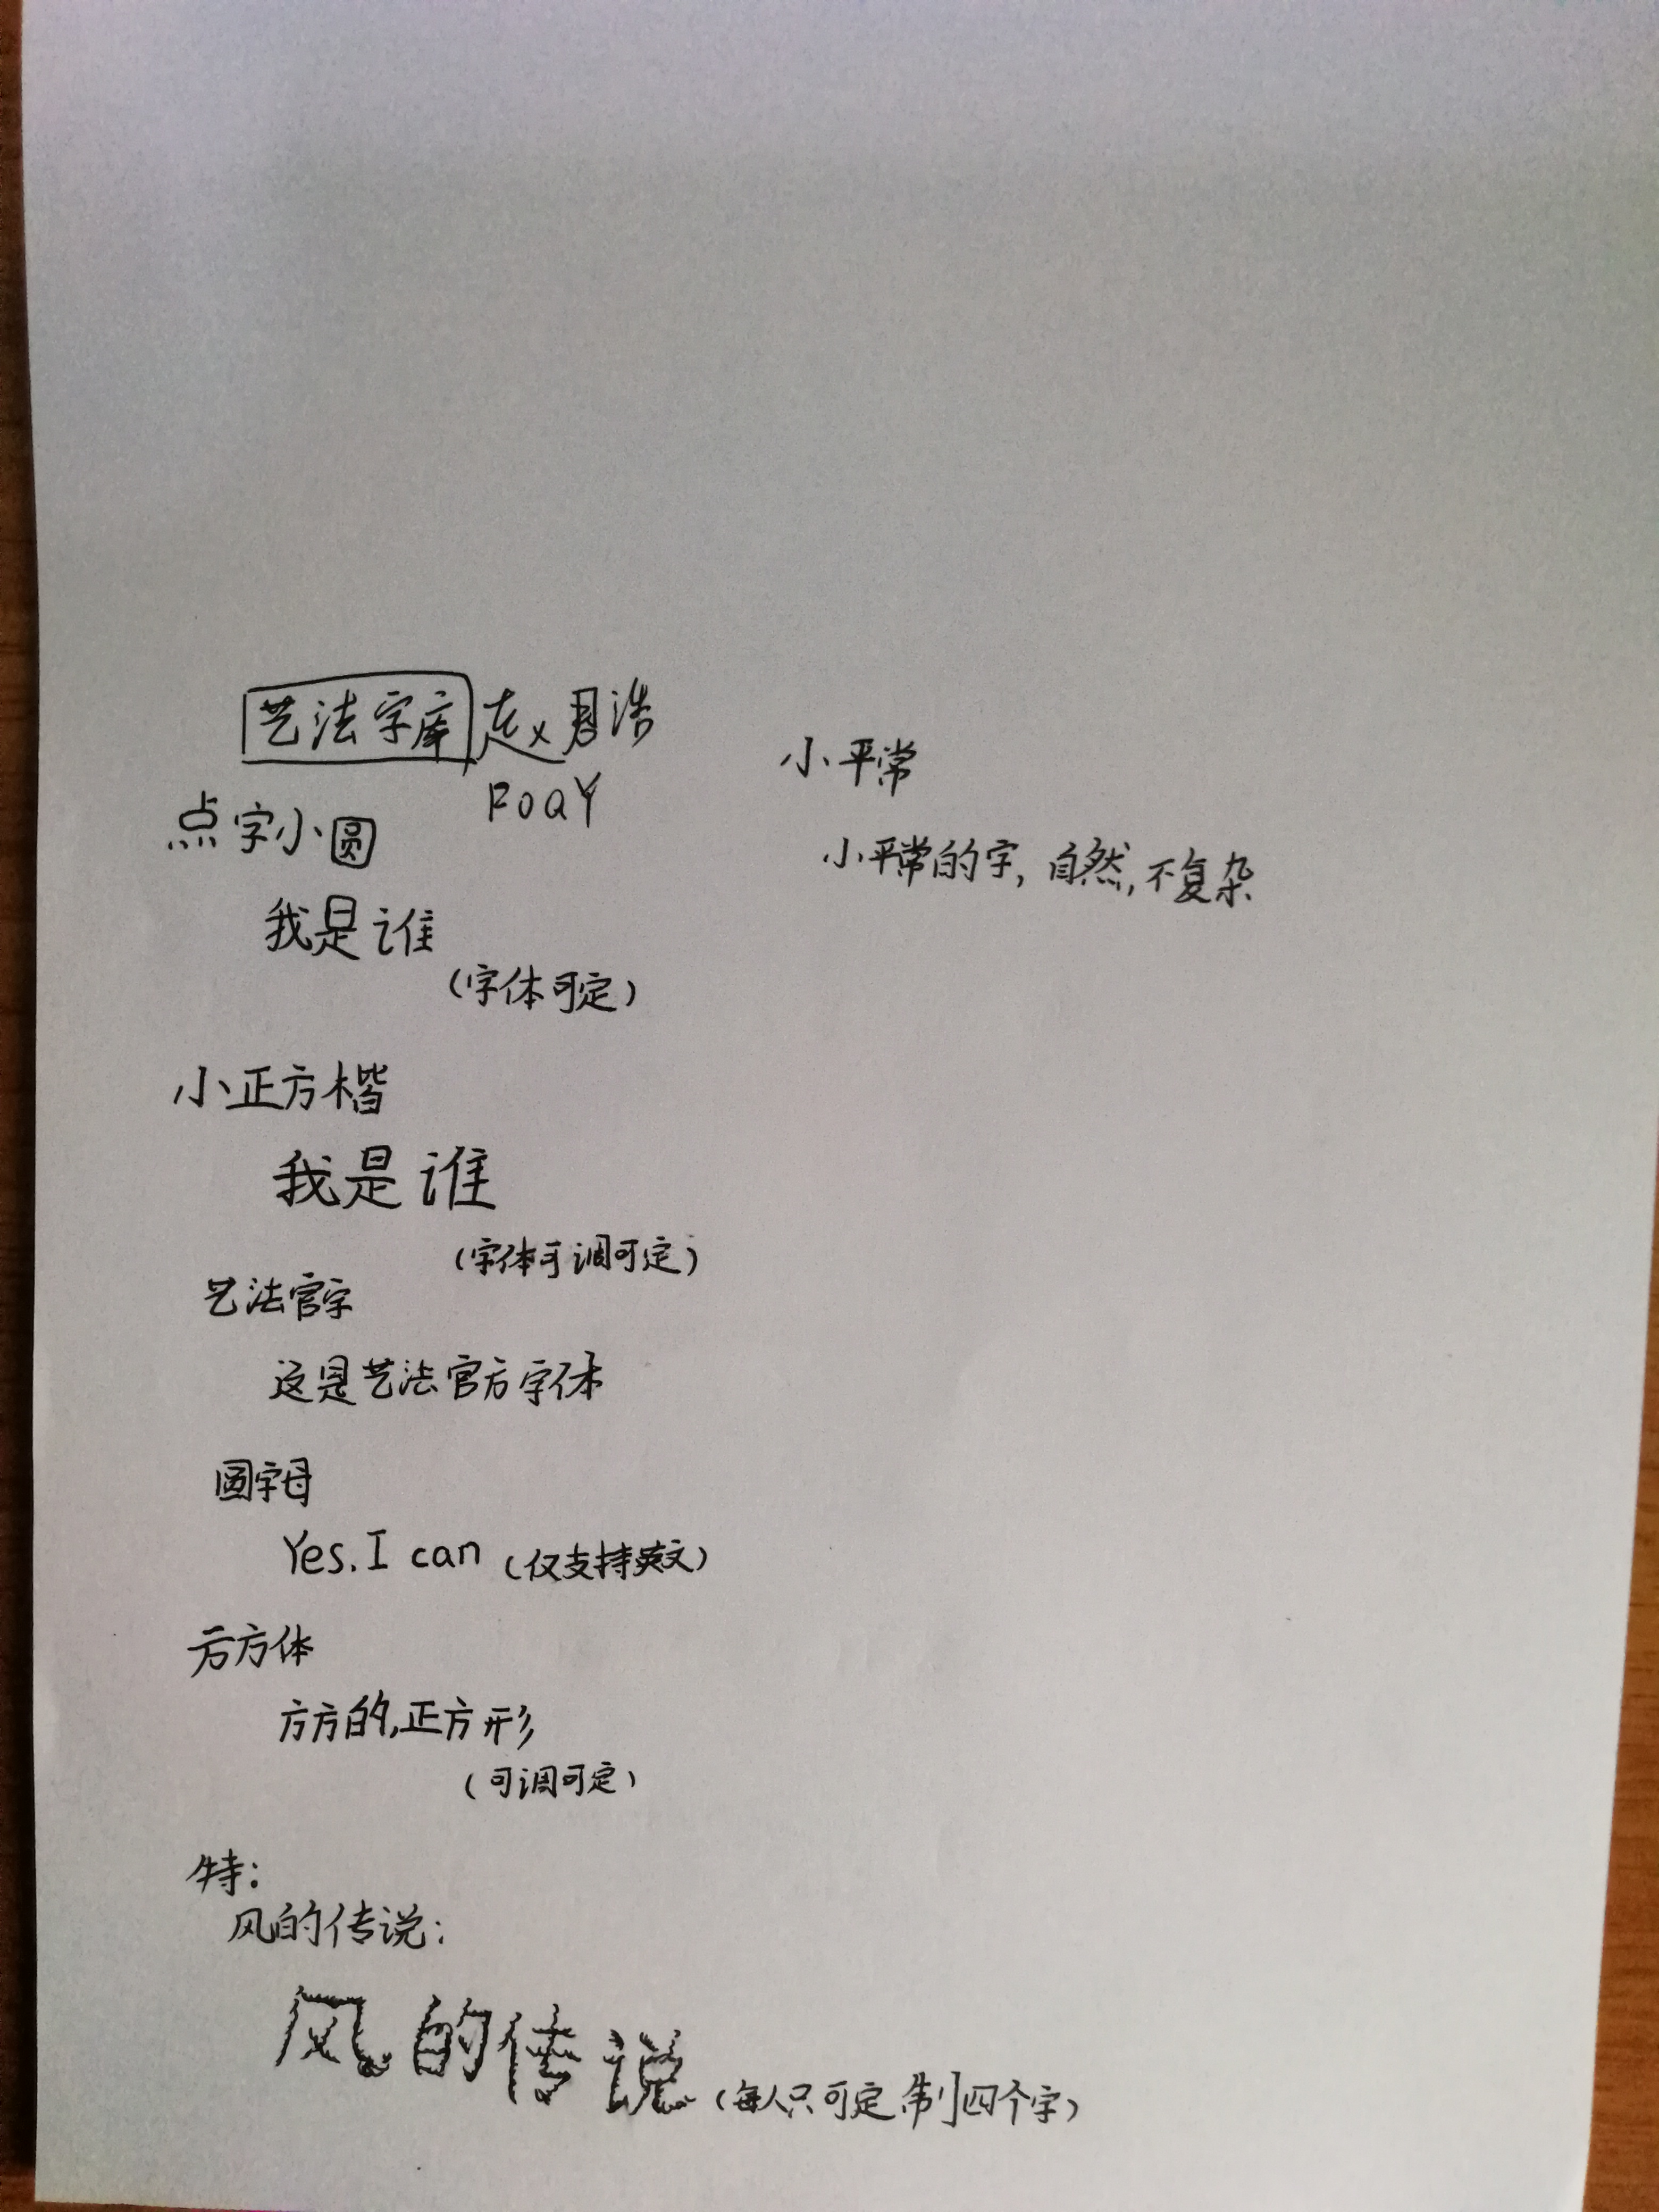 艺法字库 赵君浩
FOQY
点字小圆
我是谁
(字体可定)
小正方楷
我是谁
(字体可调可定)
艺法官字
这是艺法官方字体
圆字母
Yes.I can (仅支持英文)
方方体
方方的,正方形
(可调可定)
特:
风的传说:
风的传说 (每人只可定制四个字)
小平常
小平常的字,自然,不复杂